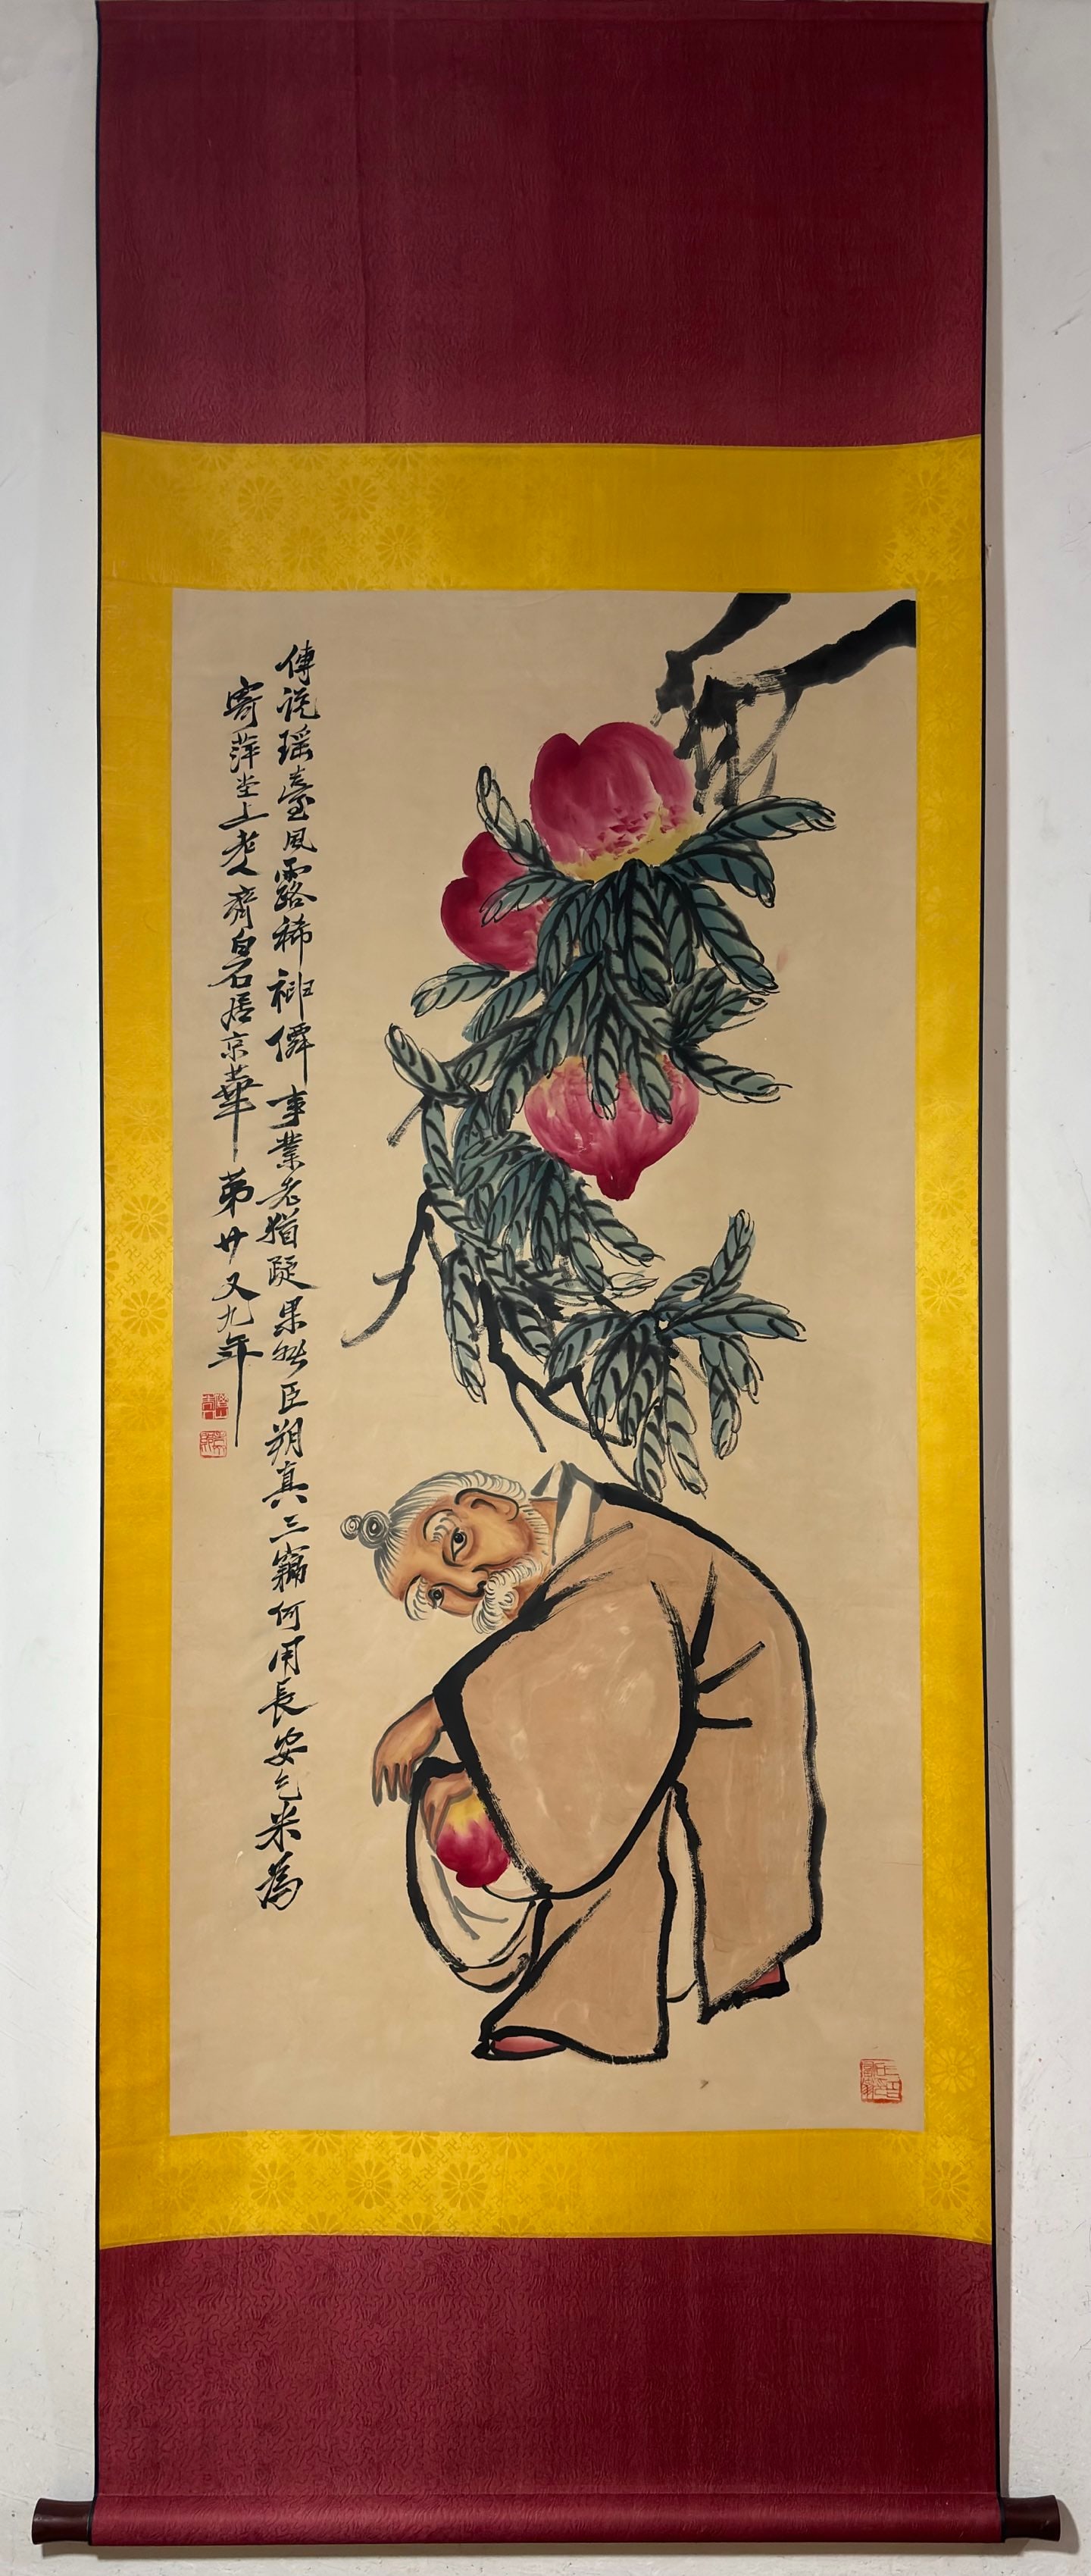 傳說瑤臺風露稀神僊事業老猶疑果然臣朔真三竊何用長安乞米為
寄萍堂上老人齊白石居京華弟廿又九年